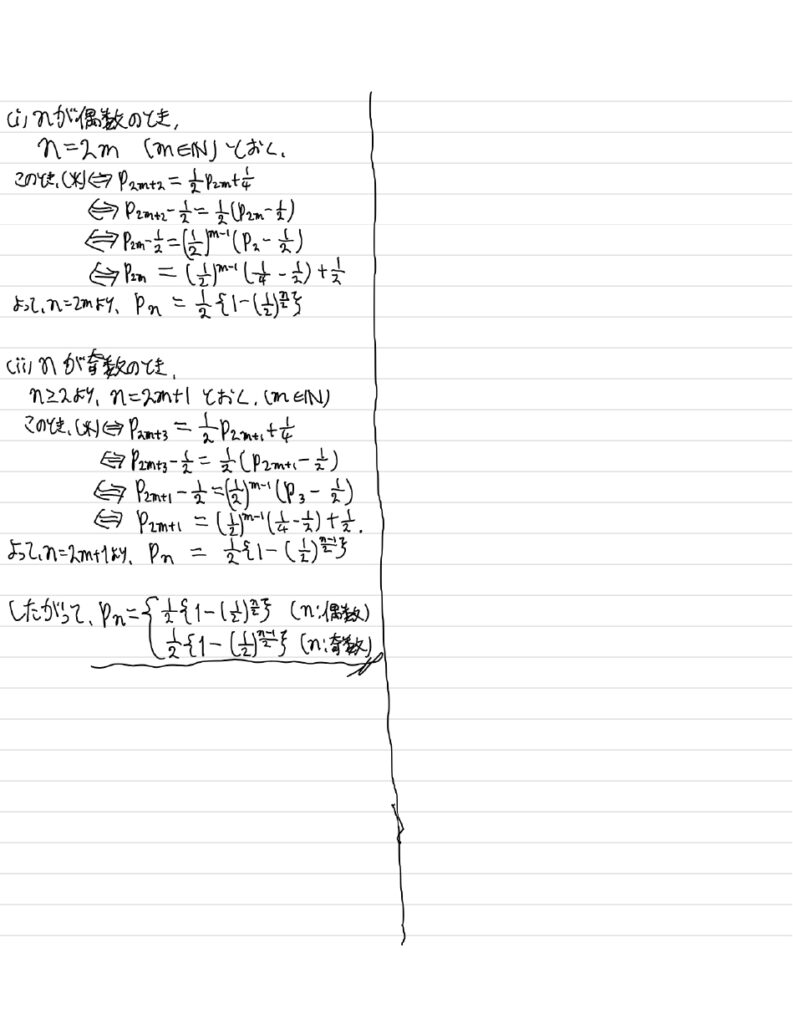 (i) nが偶数のとき,
n=2m (m∈ℕ) とおく.
このとき、(*)⇔ P_{2m+2} = 1/2 P_{2m} + 1/4
⇔ P_{2m+2} - 1/2 = 1/2 (P_{2m} - 1/2)
⇔ P_{2m} - 1/2 = (1/2)^{m-1} (P_2 - 1/2)
⇔ P_{2m} = (1/2)^{m-1} (1/4 - 1/2) + 1/2
よって、n=2mより、 P_n = 1/2 {1-(1/2)^{n/2}}
(ii) nが奇数のとき,
n≥2より、n=2m+1 とおく. (m∈ℕ)
このとき、(*)⇔ P_{2m+3} = 1/2 P_{2m+1} + 1/4
⇔ P_{2m+3} - 1/2 = 1/2 (P_{2m+1} - 1/2)
⇔ P_{2m+1} - 1/2 = (1/2)^{m-1} (P_3 - 1/2)
⇔ P_{2m+1} = (1/2)^{m-1} (1/4 - 1/2) + 1/2.
よって、n=2m+1より、 P_n = 1/2 {1 - (1/2)^{(n-1)/2}}
したがって、 P_n = { 1/2 {1 - (1/2)^{n/2}} (n:偶数)
1/2 {1 - (1/2)^{(n-1)/2}} (n:奇数)